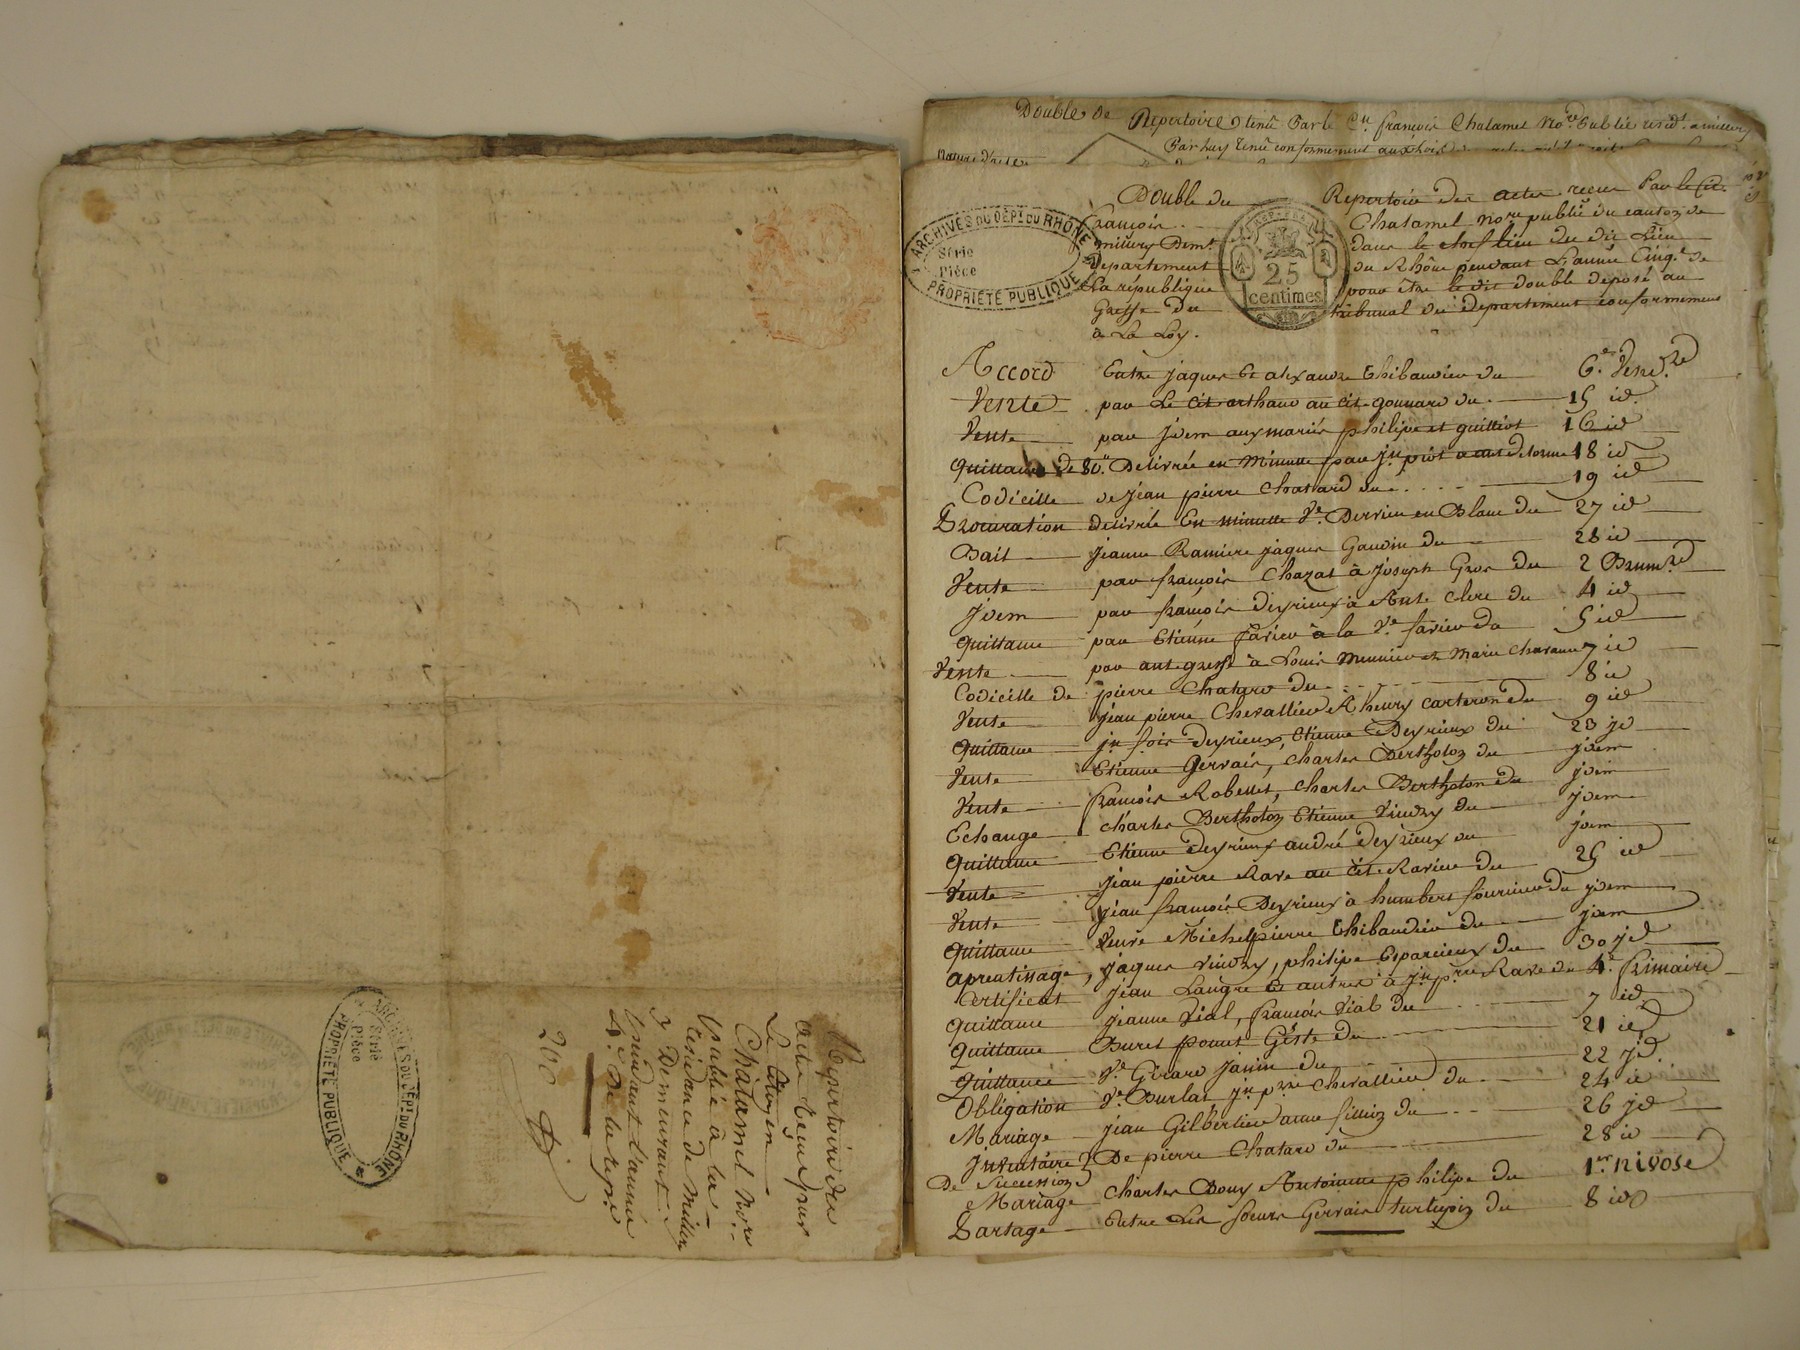 Repertoire des
acte reçus par
Le Citoyen
Chatamel Nore
publie à la
residance de Millery
y Demeurant
pendant l'année
4e de la repe
ARCHIVES DU DÉPT DU RHÔNE
Série
Pièce
PROPRIÉTÉ PUBLIQUE
Double de Repertoire tenu Par le Cn françois Chatamel Nore Public residt a millery
Par luy tenu conformement aux lois
Nature d'actes
Double du Repertoire des actes recus Par le Cit.
françois Chatamel nore public du canton de
millery Demt dans le chef lieu du dit Lieu
Departement du Rhône pendant L'année Cinqe de
La republique pour être le dit double deposé au
Greffe du tribunal du departement conformement
à La Loy.
ARCHIVES DU DÉPT DU RHÔNE
Série
Pièce
PROPRIÉTÉ PUBLIQUE
25
centimes
Accord Entre jaques Et alexandre Thibaudier du 6e Vendre
Vente par Le Cit arthaud au cit gonnard du 15 id
Vente par jdem aux mariés philipe et guilliot 16 id
Quittance de 80" Delivrée en Minutte par jn piot 18 id
Codicille de jean pierre Chatard du 19 id
Procuration delivrée En minutte Ve Dervieu en Blanc du 27 id
Bail jeanne Ramiere jaques Gaudin du 28 id
Vente par françois Chazal à joseph Gros du 2 Brumre
jdem par françois Deyrieux à Ante Clerc du 4 id
Quittance par Etienne favier à la Ve favier du 5 id
Vente par ant. greffe à Louis Meunier et Marie Chavanne 7 id
Codicille de pierre Chatard du 8 id
Vente jean pierre Chevallier A heury carteron du 9 id
Quittance jn fois Deyrieux, Etienne Deyrieux du 23 jd
Vente Etienne Gervais, Charles Bertholon du jdem
Vente francois Robellet, Charles Bertholon du jdem
Echange charles Bertholon Etienne Vindry du jdem
Quittance Etienne Deyrieux andré Deyrieux du jdem
Vente jean pierre Rave au cit. Ravier du 25 id
Vente jean françois Deyrieux à humbert fournier du jdem
Quittance Veuve Michel pierre Thibaudier du jdem
aprentissage, jaques vindry, philipe Esparcieux du 30 jd
Certificat jean Laugre Et autres à jn pre Rave du 4e frimaire
Quittance jeanne Vial, françois Vial du 7 id
Quittance Buret ponut Geste du 21 id
Quittance Ve Girard Janin du 22 jd
Obligation Ve Burlat jn pre Chevallier du 24 id
Mariage jean Gilbertier anne fillion du 26 jd
jnventaire De pierre Chatard du 28 id
De Succession
Mariage Charles Bouy Antoinne philipe du 1er nivose
Partage Entre Les soeurs Gervais turlupin du 8 id